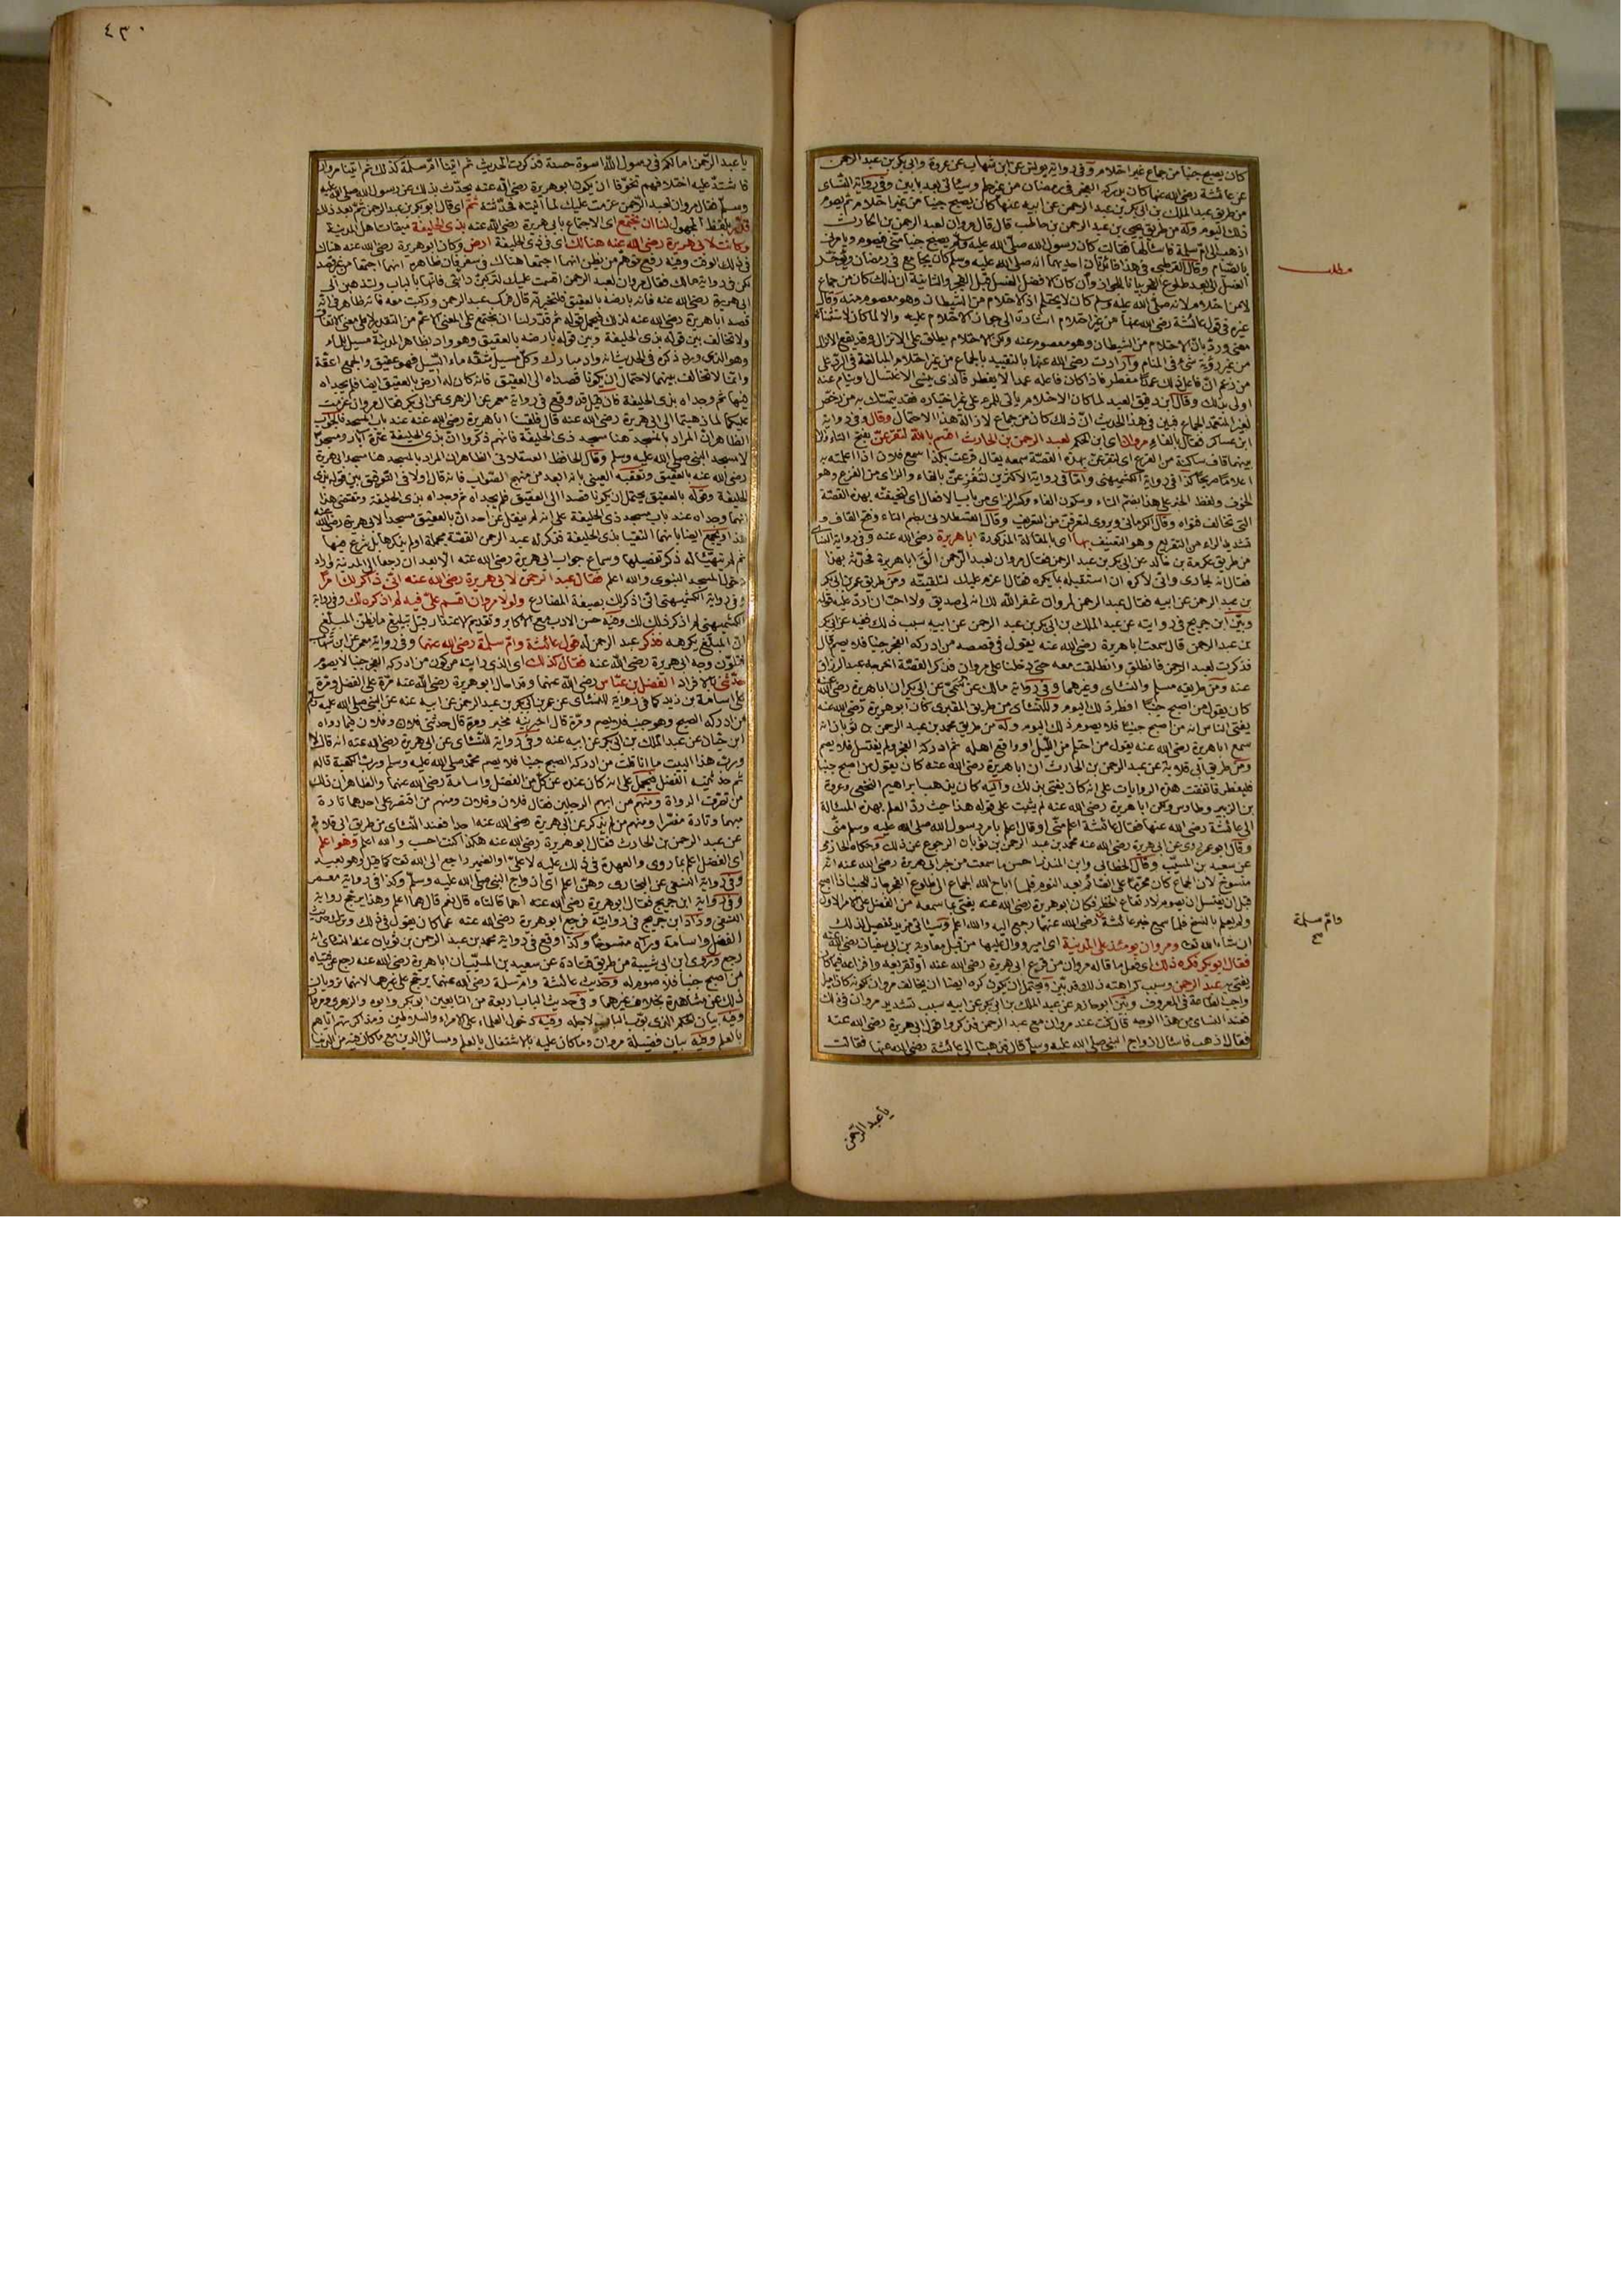 كان يصبح جنبا من جماع غير احتلام وفى رواية يونس عن ابن شهاب عن عروة وابى بكر بن عبد الرحمن
عن عائشة رضى الله عنها كان يدركه الفجر فى رمضان من غير حلم وسيأتى بعد بابين وفى رواية النسائى
من طريق عبد الملك بن ابى بكر بن عبد الرحمن عن ابيه عنها كان يصبح جنبا من غير احتلام ثم يصوم
ذلك اليوم وله من طريق يحيى بن عبد الرحمن بن حاطب قال قال مروان لعبد الرحمن بن الحارث
اذهب الى ام سلمة فاسألها فقالت كان رسول الله صلى الله عليه وسلم يصبح جنبا منى فيصوم ويأمرنى
بالصيام وقال القرطبى فى هذا فائدتان احديهما انه صلى الله عليه وسلم كان يجامع فى رمضان ويؤخر
الغسل الى بعد طلوع الفجر بيانا للجواز وان كان الافضل الغسل قبل الفجر والثانية ان ذلك كان من جماع
لا من احتلام لانه صلى الله عليه وسلم كان لا يحتلم اذ الاحتلام من الشيطان وهو معصوم منه وقال
غيره فى قول عائشة رضى الله عنها من غير احتلام اشارة الى جواز الاحتلام عليه والا لما كان للاستثناء
معنى ورد بان الاحتلام من الشيطان وهو معصوم عنه ولكن الاحتلام يطلق على الانزال وقد يقع الانزال
من غير رؤية شىء فى المنام وارادت رضى الله عنها بالتقييد بالجماع من غير احتلام المبالغة فى الرد على
من زعم ان فاعل ذلك عمدا مفطر فاذا كان فاعله عمدا لا يفطر فالذى ينسى الاغتسال وينام عنه
اولى بذلك وقال ابن دقيق العيد لما كان الاحتلام يأتى للمرء على غير اختياره فقد يتمسك به من يرخص
لغير المتعمد الجماع فبين فى هذا الحديث ان ذلك كان من جماع لازالة هذا الاحتمال وقال وفى رواية
ابن عساكر فقال بالفاء مروان اى ابن الحكم لعبد الرحمن بن الحارث اقسم بالله لتقرعن بفتح التاء والراء
بينهما قاف ساكنة من القرع اى لتقرعن بهذه القصة سمعه يقال قرعت بكذا سمع فلان اذا اعلمته به
اعلاما صريحا كذا فى رواية الكشميهنى واما فى رواية الاكثرين لتفزعن بالفاء والزاى من الفزع وهو
الخوف ولفظ الخبر على هذا بضم التاء وسكون الفاء وكسر الزاى من باب الافعال اى لتخيفنه بهذه القصة
التى تخالف فتواه وقال الكرمانى ويروى لتعرفن من التعريف وقال القسطلانى بضم التاء وفتح القاف و
تشديد الراء من التقريع وهو التعنيف بها اى بالمقالة المذكورة ابا هريرة رضى الله عنه وفى رواية النسائى
من طريق عكرمة بن خالد عن ابى بكر بن عبد الرحمن فقال مروان لعبد الرحمن الق ابا هريرة فحدثه بهذا
فقال انه لجارى وانى لأكره ان استقبله بما يكره فقال اعزم عليك لتلقينه ومن طريق عمر بن ابى بكر
بن عبد الرحمن عن ابيه فقال عبد الرحمن لمروان غفر الله لك انه لى صديق ولا احب ان ارد عليه قوله
وبين ابن جريج فى روايته عن عبد الملك بن ابى بكر بن عبد الرحمن عن ابيه سبب ذلك ففيه عن ابى بكر
بن عبد الرحمن قال سمعت ابا هريرة رضى الله عنه يقول فى قصصه من ادركه الفجر جنبا فلا يصم قال
فذكرت لعبد الرحمن فانطلق وانطلقت معه حتى دخلنا على مروان فذكر القصة اخرجه عبد الرزاق
عنه ومن طريقه مسلم والنسائى وغيرهما وفى رواية مالك عن سمى عن ابى بكر ان ابا هريرة رضى الله عنه
كان يقول من اصبح جنبا افطر ذلك اليوم وللنسائى من طريق المقبرى كان ابو هريرة رضى الله عنه
يفتى الناس انه من اصبح جنبا فلا يصوم ذلك اليوم وله من طريق محمد بن عبد الرحمن بن ثوبان انه
سمع ابا هريرة رضى الله عنه يقول من احتلم من الليل او واقع اهله ثم ادركه الفجر ولم يغتسل فلا يصم
ومن طريق ابى قلابة عن عبد الرحمن بن الحارث ان ابا هريرة رضى الله عنه كان يقول من اصبح جنبا
فليفطر فاتفقت هذه الروايات على انه كان يفتى بذلك واليه كان يذهب ابراهيم النخعى وعروة
بن الزبير وطاوس ولكن ابا هريرة رضى الله عنه لم يثبت على قوله هذا حيث رد العلم بهذه المسئالة
الى عائشة رضى الله عنها فقال عائشة اعلم منى او قال اعلم بامر رسول الله صلى الله عليه وسلم منى
وقال ابو عمر روى عن ابى هريرة رضى الله عنه محمد بن عبد الرحمن بن ثوبان الرجوع عن ذلك وحكاه الحازمى
عن سعيد بن المسيب وقال الخطابى وابن المنذر احسن ما سمعت من خبر ابى هريرة رضى الله عنه انه
منسوخ لان الجماع كان محرما على الصائم بعد النوم فلما اباح الله الجماع الى طلوع الفجر جاز للجنب اذا اصبح
قبل ان يغتسل ان يصوم لارتفاع الحظر فكان ابو هريرة رضى الله عنه يفتى بما سمعه من الفضل على الامر الاول
ولم يعلم بالنسخ فلما سمع خبر عائشة رضى الله عنها رجع اليه والله اعلم وسيأتى مزيد تفصيل لذلك
ان شاء الله تعالى ومروان يومئذ على المدينة اى امير ووال عليها من قبل معاوية بن ابى سفيان رضى الله عنه
فقال ابو بكر فكره ذلك اى فعل ما قاله مروان من قرع ابى هريرة رضى الله عنه او تقريعه وافزاعه فيما كان
يفتى به عبد الرحمن وسبب كراهته ذلك قد بين ويحتمل ان يكون كره ايضا ان يخالف مروان لكونه كان اميرا
واجب الطاعة فى المعروف وبين ابو حازم عن عبد الملك بن ابى بكر عن ابيه سبب تشديد مروان فى ذلك
فعند النسائى من هذا الوجه قال كنت عند مروان مع عبد الرحمن فذكروا قول ابى هريرة رضى الله عنه
فقال اذهب فاسأل ازواج النبى صلى الله عليه وسلم قال فذهبنا الى عائشة رضى الله عنها فقالت
مطلب
وام سلمة
صح
يا عبد الرحمن
٤٣٠
يا عبد الرحمن اما لكم فى رسول الله اسوة حسنة فذكرت الحديث ثم اتينا ام سلمة كذلك ثم اتينا مروان
فاشتد عليه اختلافهم تخوفا ان يكون ابو هريرة رضى الله عنه يحدث بذلك عن رسول الله صلى الله عليه
وسلم فقال مروان لعبد الرحمن عزمت عليك لما اتيته فحدثته ثم اى قال ابو بكر بن عبد الرحمن ثم بعد ذلك
قدر بلفظ المجهول لنا ان نجتمع اى الاجتماع بابى هريرة رضى الله عنه بذى الحليفة ميقات اهل المدينة
وكانت لابى هريرة رضى الله عنه هنالك اى فى ذى الحليفة ارض وكان ابو هريرة رضى الله عنه هناك
فى ذلك الوقت وفيه رفع توهم من يظن انهما اجتمعا هناك فى سفر فان ظاهره انهما اجتمعا من غير قصد
لكن فى رواية مالك فقال مروان لعبد الرحمن اقسمت عليك لتركبن دابتى فانها بالباب ولتذهبن الى
ابى هريرة رضى الله عنه فانه بارضه بالعقيق فلتخبرنه قال فركب عبد الرحمن وركبت معه فانه ظاهر فى انه
قصد ابا هريرة رضى الله عنه لذلك فيحمل قوله ثم قدر لنا ان نجتمع على المعنى الاعم من التقدير لا على معنى الاتفاق
ولا تخالف بين قوله بذى الحليفة وبين قوله بارضه بالعقيق وهو واد بظاهر المدينة مسيل للماء
وهو الذى ورد ذكره فى الحديث انه واد مبارك وكل مسيل شقه ماء السيل فهو عقيق والجمع اعقة
وانما لا تخالف بينهما لاحتمال ان يكونا قصداه الى العقيق فانه كان له ارض بالعقيق ايضا فلم يجداه
فيها ثم وجداه بذى الحليفة فان قيل قد وقع فى رواية معمر عن الزهرى عن ابى بكر فقال مروان عزمت
عليكما لما ذهبتما الى ابى هريرة رضى الله عنه قال فلقينا ابا هريرة رضى الله عنه عند باب المسجد فالجواب
الظاهر ان المراد بالمسجد هنا مسجد ذى الحليفة فانهم ذكروا ان بذى الحليفة عدة آبار ومسجدين
لا مسجد النبى صلى الله عليه وسلم وقال الحافظ العسقلانى الظاهر ان المراد بالمسجد هنا مسجد ابى هريرة
رضى الله عنه بالعقيق وتعقبه العينى بانه ابعد من منهج الصواب فانه قال اولا فى التوفيق بين قوله بذى
الحليفة وقوله بالعقيق يحتمل ان يكونا قصدا الى العقيق فلم يجداه ثم وجداه بذى الحليفة ومقتضى هذا
انهما وجداه عند باب مسجد ذى الحليفة على انه لم ينقل عن احد ان بالعقيق مسجدا لابى هريرة رضى الله عنه
هذا ويجمع ايضا بانهما التقيا بذى الحليفة فذكر له عبد الرحمن القصة مجملة او لم يذكرها بل شرع فيها
ثم لم يتهيأ له ذكر تفصيلها وسماع جواب ابى هريرة رضى الله عنه الا بعد ان رجعا الى المدينة واراد
دخول المسجد النبوى والله اعلم فقال عبد الرحمن لابى هريرة رضى الله عنه انى ذاكر لك امرا
وفى رواية الكشميهنى انى اذكر لك بصيغة المضارع ولولا مروان اقسم على فيه لم اذكره لك وفى رواية
الكشميهنى لم اذكر ذلك لك وفيه حسن الادب مع الاكابر وتقديم الاعتذار قبل تبليغ ما يظن المبلغ
ان المبلغ يكرهه فذكر عبد الرحمن له قول عائشة وام سلمة رضى الله عنهما وفى رواية معمر عن ابن شهاب
فتلون وجه ابى هريرة رضى الله عنه فقال كذلك اى الذى رايته من كون من ادركه الفجر جنبا لا يصوم
حدثنى بالافراد الفضل بن عباس رضى الله عنهما وقد احال ابو هريرة رضى الله عنه مرة على الفضل ومرة
على اسامة بن زيد كما فى رواية للنسائى عن عمر بن ابى بكر بن عبد الرحمن عن ابيه عنه عن النبى صلى الله عليه وسلم
من ادركه الصبح وهو جنب فلا يصم ومرة قال اخبرنيه مخبر ومرة قال حدثنى فلان وفلان فيما رواه
ابن حبان عن عبد الملك بن ابى بكر عن ابيه عنه وفى رواية للنسائى عن ابى هريرة رضى الله عنه انه قال لا
ورب هذا البيت ما انا قلت من ادركه الصبح جنبا فلا يصم محمد صلى الله عليه وسلم ورب الكعبة قاله
ثم حدثنيه الفضل فيحمل على انه كان عنده عن كل من الفضل واسامة رضى الله عنهما والظاهر ان ذلك
من تصرف الرواة ومنهم من ابهم الرجلين فقال فلان وفلان ومنهم من اقتصر على احدهما تارة
مبهما وتارة مفسرا ومنهم من لم يذكر عن ابى هريرة رضى الله عنه احدا فعند النسائى من طريق ابى قلابة
عن عبد الرحمن بن الحارث فقال ابو هريرة رضى الله عنه هكذا كنت احسب والله اعلم وهو اعلم
اى الفضل اعلم بما روى والعهدة فى ذلك عليه لا على او الضمير راجع الى الله تعالى كما قيل وهو بعيد
وفى رواية النسفى عن البخارى وهن اعلم اى ازواج النبى صلى الله عليه وسلم وكذا فى رواية معمر
وفى رواية ابن جريج فقال ابو هريرة رضى الله عنه اهما قالتاه قال نعم قال هما اعلم وهذا يرجح رواية
النسفى وزاد ابن جريج فى روايته فرجع ابو هريرة رضى الله عنه عما كان يقول فى ذلك وترك حديث
الفضل واسامة ورآه منسوخا وكذا وقع فى رواية محمد بن عبد الرحمن بن ثوبان عند النسائى انه
رجع وروى ابن ابى شيبة من طريق قتادة عن سعيد بن المسيب ان ابا هريرة رضى الله عنه رجع عن فتياه
من اصبح جنبا فلا صوم له وحديث عائشة وام سلمة رضى الله عنهما يرجح على غيرهما لانهما ترويان
ذلك عن مشاهدة بخلاف غيرهما وفى حديث الباب اربعة من التابعين ابو بكر وابوه والزهرى ومروان
وفيه بيان الحكم الذى بوب الباب لاجله وفيه دخول العلماء على الامراء والسلاطين ومذاكرتهم اياهم
بالعلم وفيه بيان فضيلة مروان وما كان عليه بالاشتغال بالعلم ومسائل الدين مع ما كان فيه من الدنيا